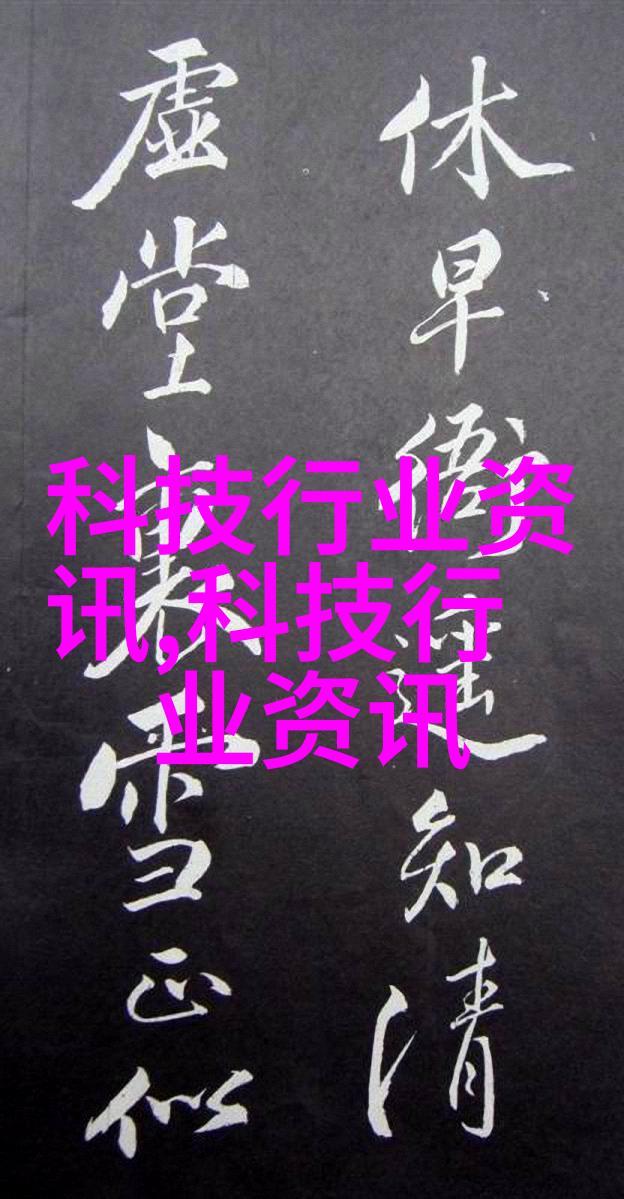 休早衙知清
虚堂雪正似
科技行业资
讯,科技行
业资讯